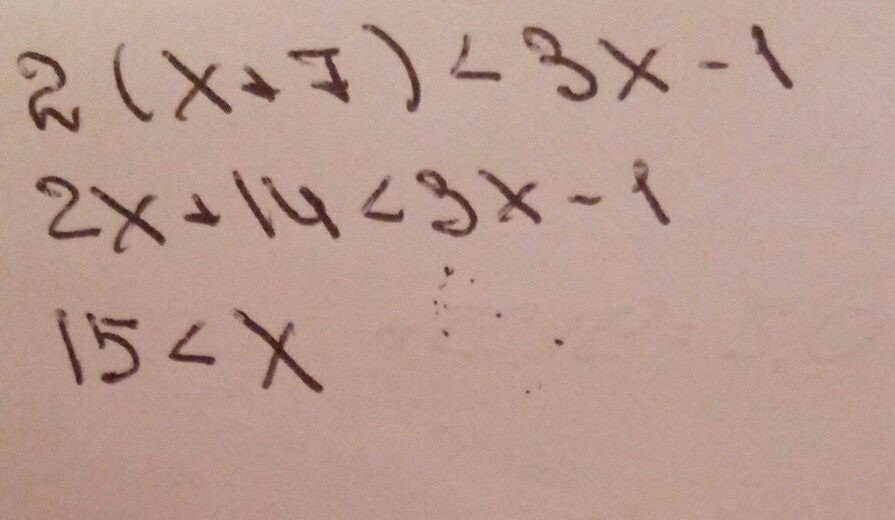 2(x+7)<3x-1
2x+14<3x-1
15<x